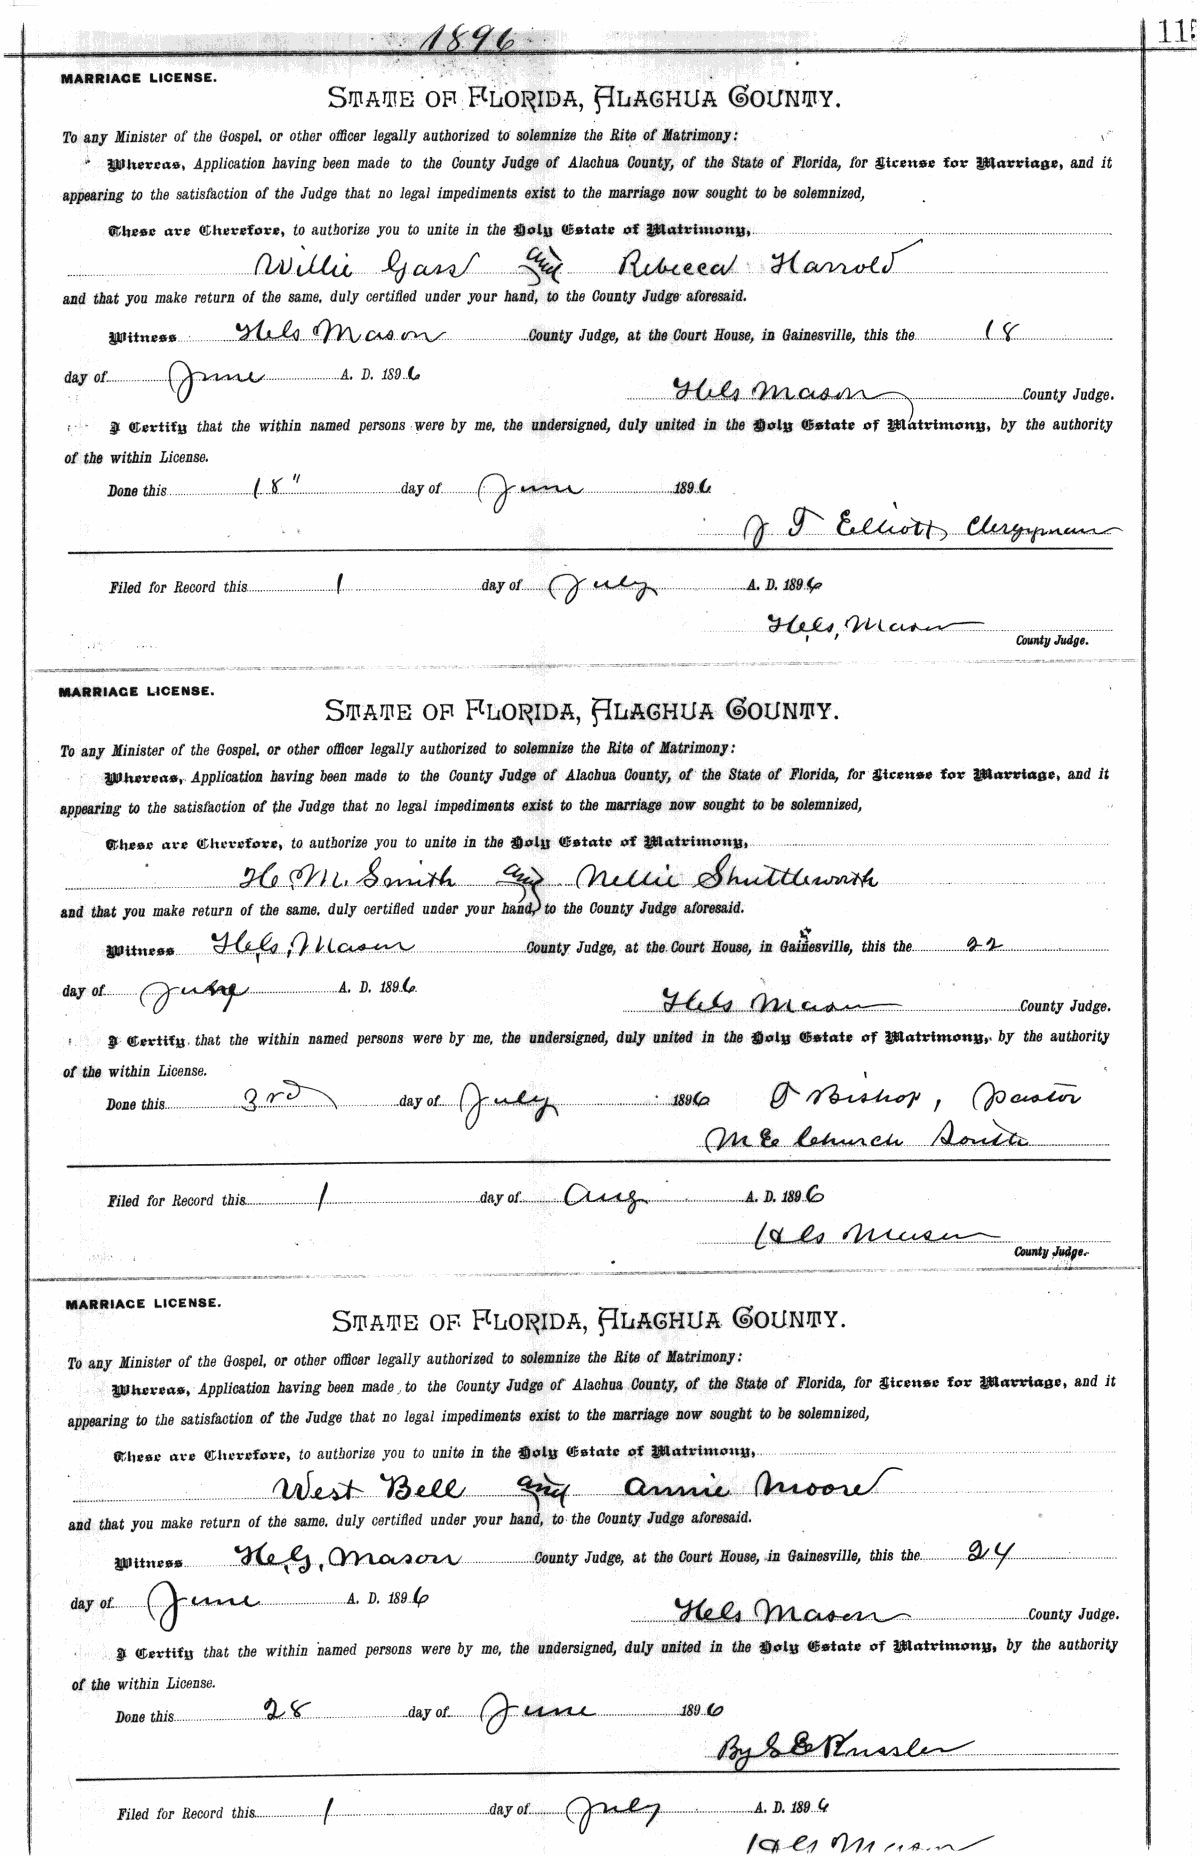 1896
115
MARRIAGE LICENSE.
STATE OF FLORIDA, ALACHUA COUNTY.
To any Minister of the Gospel, or other officer legally authorized to solemnize the Rite of Matrimony:
Whereas, Application having been made to the County Judge of Alachua County, of the State of Florida, for License for Marriage, and it
appearing to the satisfaction of the Judge that no legal impediments exist to the marriage now sought to be solemnized,
These are Therefore, to authorize you to unite in the Holy Estate of Matrimony,
Willie Gass and Rebecca Harrold
and that you make return of the same, duly certified under your hand, to the County Judge aforesaid.
Witness H.G. Mason County Judge, at the Court House, in Gainesville, this the 18
day of June A. D. 1896
H.G. Mason County Judge.
I Certify that the within named persons were by me, the undersigned, duly united in the Holy Estate of Matrimony, by the authority
of the within License.
Done this 18" day of June 1896
J T Elliott, Clergyman
Filed for Record this 1 day of July A. D. 1896
H.G. Mason
County Judge.
MARRIAGE LICENSE.
STATE OF FLORIDA, ALACHUA COUNTY.
To any Minister of the Gospel, or other officer legally authorized to solemnize the Rite of Matrimony:
Whereas, Application having been made to the County Judge of Alachua County, of the State of Florida, for License for Marriage, and it
appearing to the satisfaction of the Judge that no legal impediments exist to the marriage now sought to be solemnized,
These are Therefore, to authorize you to unite in the Holy Estate of Matrimony,
H. M. Smith and Nellie Shuttleworth
and that you make return of the same, duly certified under your hand, to the County Judge aforesaid.
Witness H.G. Mason County Judge, at the Court House, in Gainesville, this the 22
day of June A. D. 1896
H.G. Mason County Judge.
I Certify that the within named persons were by me, the undersigned, duly united in the Holy Estate of Matrimony, by the authority
of the within License.
Done this 3rd day of July 1896 T Bishop, pastor
M E Church South
Filed for Record this 1 day of Aug A. D. 1896
H.G. Mason
County Judge.
MARRIAGE LICENSE.
STATE OF FLORIDA, ALACHUA COUNTY.
To any Minister of the Gospel, or other officer legally authorized to solemnize the Rite of Matrimony:
Whereas, Application having been made to the County Judge of Alachua County, of the State of Florida, for License for Marriage, and it
appearing to the satisfaction of the Judge that no legal impediments exist to the marriage now sought to be solemnized,
These are Therefore, to authorize you to unite in the Holy Estate of Matrimony,
West Bell and Annie Moore
and that you make return of the same, duly certified under your hand, to the County Judge aforesaid.
Witness H.G. Mason County Judge, at the Court House, in Gainesville, this the 24
day of June A. D. 1896
H.G. Mason County Judge.
I Certify that the within named persons were by me, the undersigned, duly united in the Holy Estate of Matrimony, by the authority
of the within License.
Done this 28 day of June 1896
By
Filed for Record this 1 day of July A. D. 1896
H.G. Mason